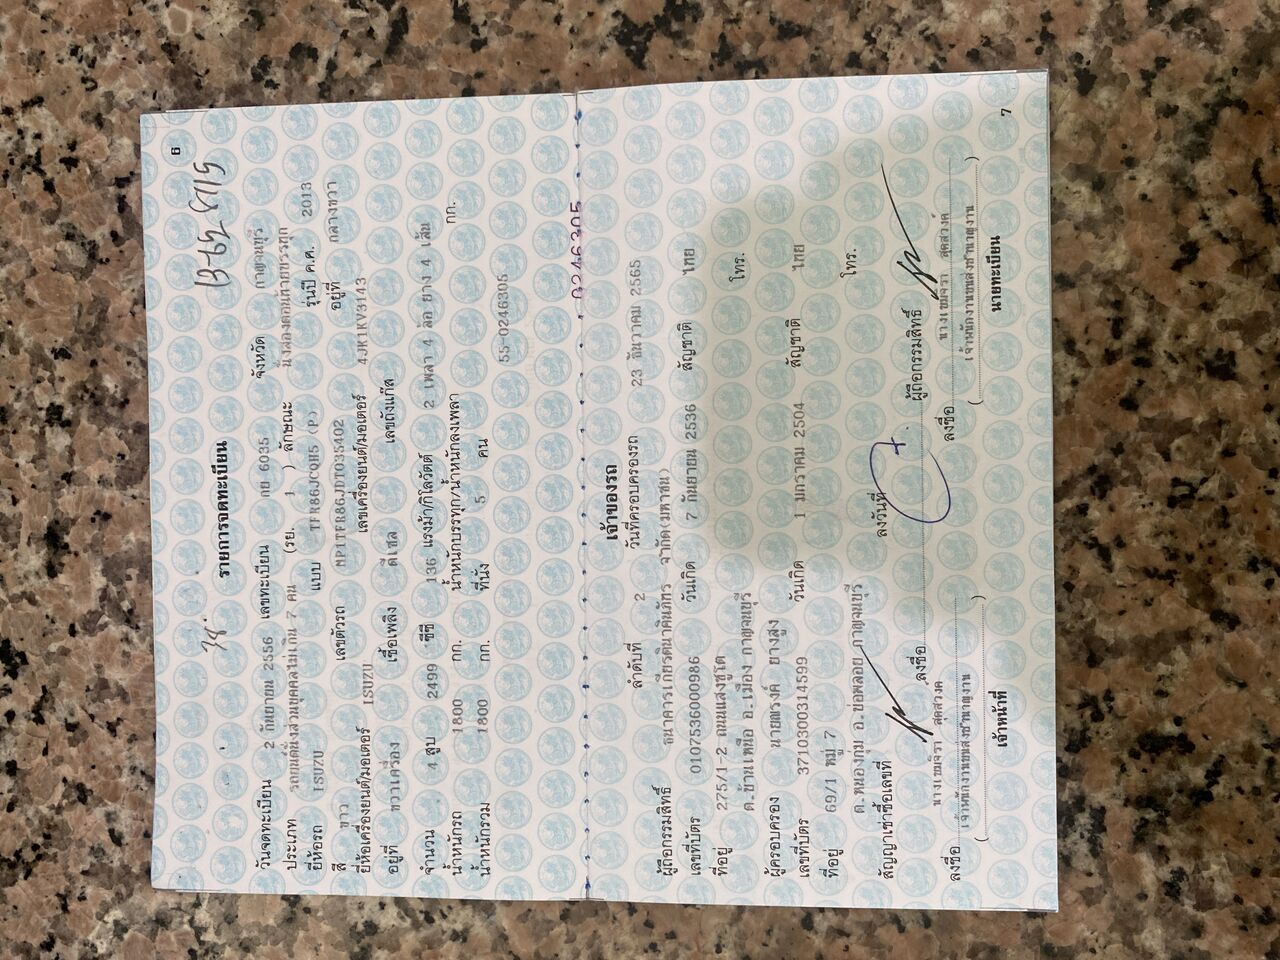 6
รายการจดทะเบียน
วันจดทะเบียน 2 กันยายน 2556 เลขทะเบียน กย 6035 จังหวัด กาญจนบุรี
ประเภท รถยนต์นั่งส่วนบุคคลไม่เกิน 7 คน (รย. 1 ) ลักษณะ นั่งสองตอนท้ายบรรทุก
ยี่ห้อรถ ISUZU แบบ TFR86JCQH5 (P) รุ่นปี ค.ศ. 2013
สี ขาว เลขตัวรถ MP1TFR86JDT035402 อยู่ที่ กลางขวา
ยี่ห้อเครื่องยนต์/มอเตอร์ ISUZU เลขเครื่องยนต์/มอเตอร์ 4JK1KV3143
อยู่ที่ ขวาเครื่อง เชื้อเพลิง ดีเซล เลขถังแก๊ส
จำนวน 4 สูบ 2499 ซีซี 136 แรงม้า/กิโลวัตต์ 2 เพลา 4 ล้อ ยาง 4 เส้น
น้ำหนักรถ 1800 กก. น้ำหนักบรรทุก/น้ำหนักลงเพลา กก.
น้ำหนักรวม 1800 กก. ที่นั่ง 5 คน
55-0246305
0246305
เจ้าของรถ
ลำดับที่ 2 วันที่ครอบครองรถ 23 ธันวาคม 2565
ผู้ถือกรรมสิทธิ์ ธนาคารเกียรตินาคินภัทร จำกัด(มหาชน)
เลขที่บัตร 0107536000986 วันเกิด 7 กันยายน 2536 สัญชาติ ไทย
ที่อยู่ 275/1-2 ถนนแสงชูโต
ต.บ้านเหนือ อ.เมือง กาญจนบุรี โทร.
ผู้ครอบครอง นายณรงค์ ยางสูง
เลขที่บัตร 3710300314599 วันเกิด 1 มกราคม 2504 สัญชาติ ไทย
ที่อยู่ 69/1 หมู่ 7
ต.หนองกุ่ม อ.บ่อพลอย กาญจนบุรี โทร.
สัญญาเช่าซื้อเลขที่ ลงวันที่
ลงชื่อ ผู้ถือกรรมสิทธิ์
ลงชื่อ นางเข็มจิรา สุดสวงค์ ลงชื่อ นางเข็มจิรา สุดสวงค์
( เจ้าพนักงานขนส่งชำนาญงาน ) ( เจ้าพนักงานขนส่งชำนาญงาน )
เจ้าหน้าที่ นายทะเบียน
7